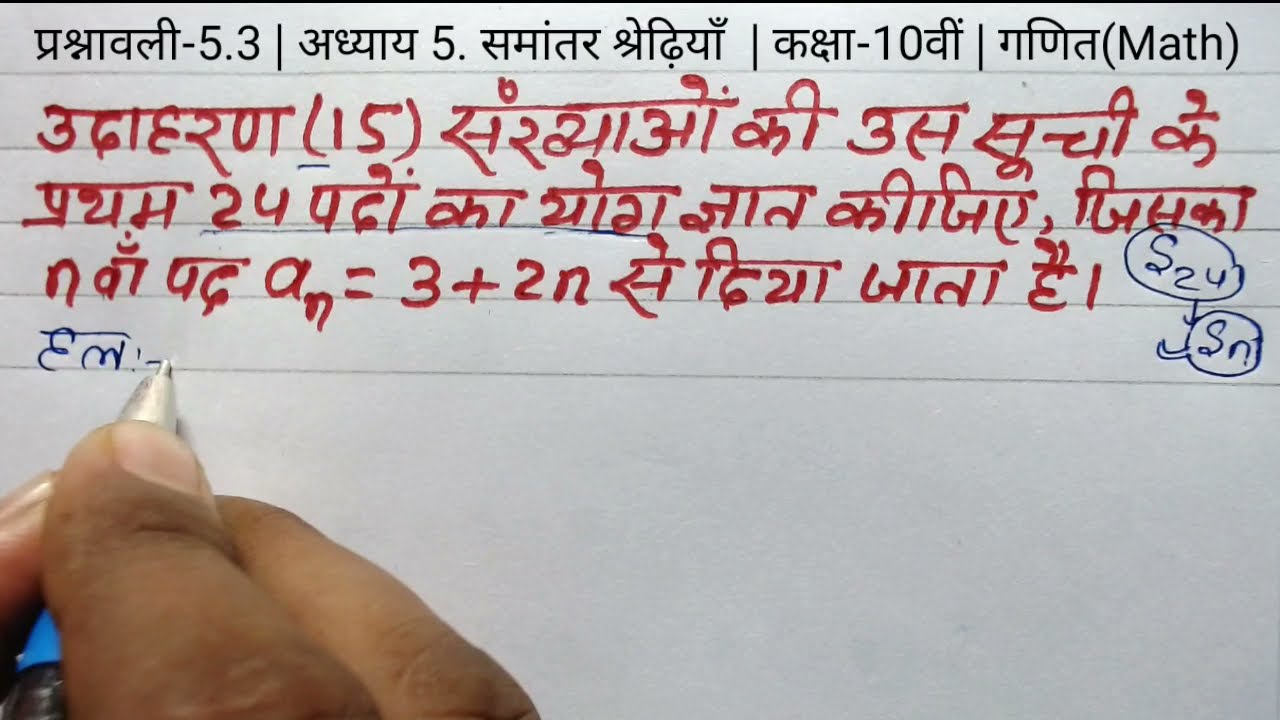 प्रश्नावली-5.3 | अध्याय 5. समांतर श्रेढ़ियाँ | कक्षा-10वीं | गणित(Math)
उदाहरण (15) संख्याओं की उस सूची के
प्रथम 24 पदों का योग ज्ञात कीजिए, जिसका
n वाँ पद aₙ = 3 + 2n से दिया जाता है।
S₂₄
Sₙ
हल:-